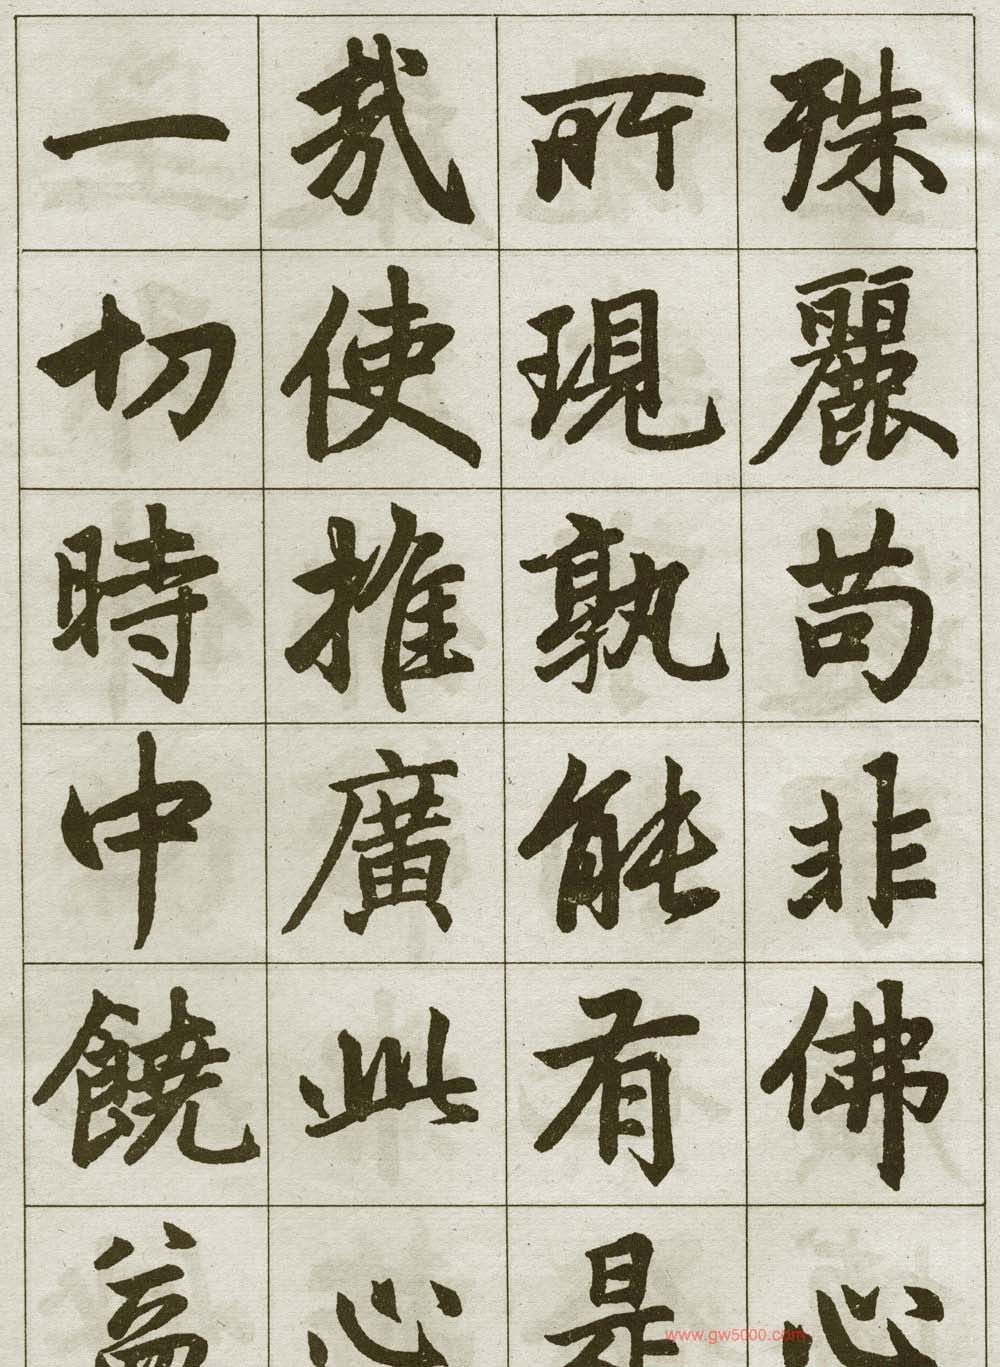 殊麗苟非佛心
所現孰能有是
哉使推廣此心
一切時中饒益
www.gw5000.com